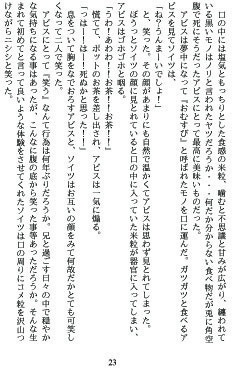 口の中には塩気ともっちりとした食感の米粒、噛むと不思議と甘みが広がり、纏われて
いる黒いモノはノリと言われたヤツだろうか・・・何だか分からない食べ物だが兎に角空
腹だったゾイツとアビスにとって最高に美味いものだった。
アビスは夢中になって『おむすび』と呼ばれたモノを口に運んだ。ガツガツと食べるア
ビスを見てゾイツは、
「ね？うんまーいでしょ？」
と、笑った。その顔があまりにも自然で温かくてアビスは思わず見とれてしまった。
ぼうっとゾイツの顔に見とれていると口の中に入っていた米粒が器官に入ってしまい、
アビスはゴホゴホと咽る。
「うわ！あわわ！！お茶！お茶！！」
慌てて、ポットのお茶を差し出され、アビスは一気に煽る。
「ってはー！死ぬかと思った！！」
息をついて胸をなでおろすアビスと、ゾイツはお互いの顔をみて何故だかとても可笑し
くなって二人で笑った。
アビスにとって『笑う』なんて行為は何年ぶりだろう。兄と過ごす日々の中で穏やか
な気持ちになる事はあったが、こんなに腹の底から笑った事等あっただろうか。そんな生
まれて初めてと言って良いような体験をさせてくれたゾイツは口の周りにコメ粒を沢山つ
けながらニシシと笑った。
23